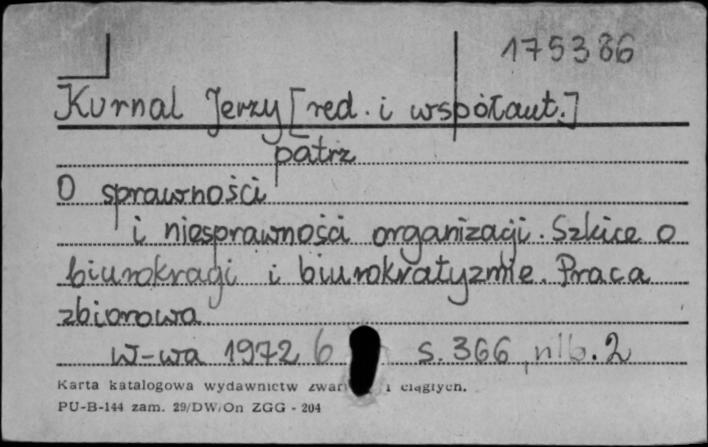 175386
Kurnal Jerzy [red. i współaut.]
patrz
O sprawności
i niesprawności organizacji. Szkice o
biurokracji i biurokratyzmie. Praca
zbiorowa
W-wa 1972 s. 366, nlb. 2
Karta katalogowa wydawnictw i ciągłych.
PU-B-144 zam. 29/DW/On ZGG - 204